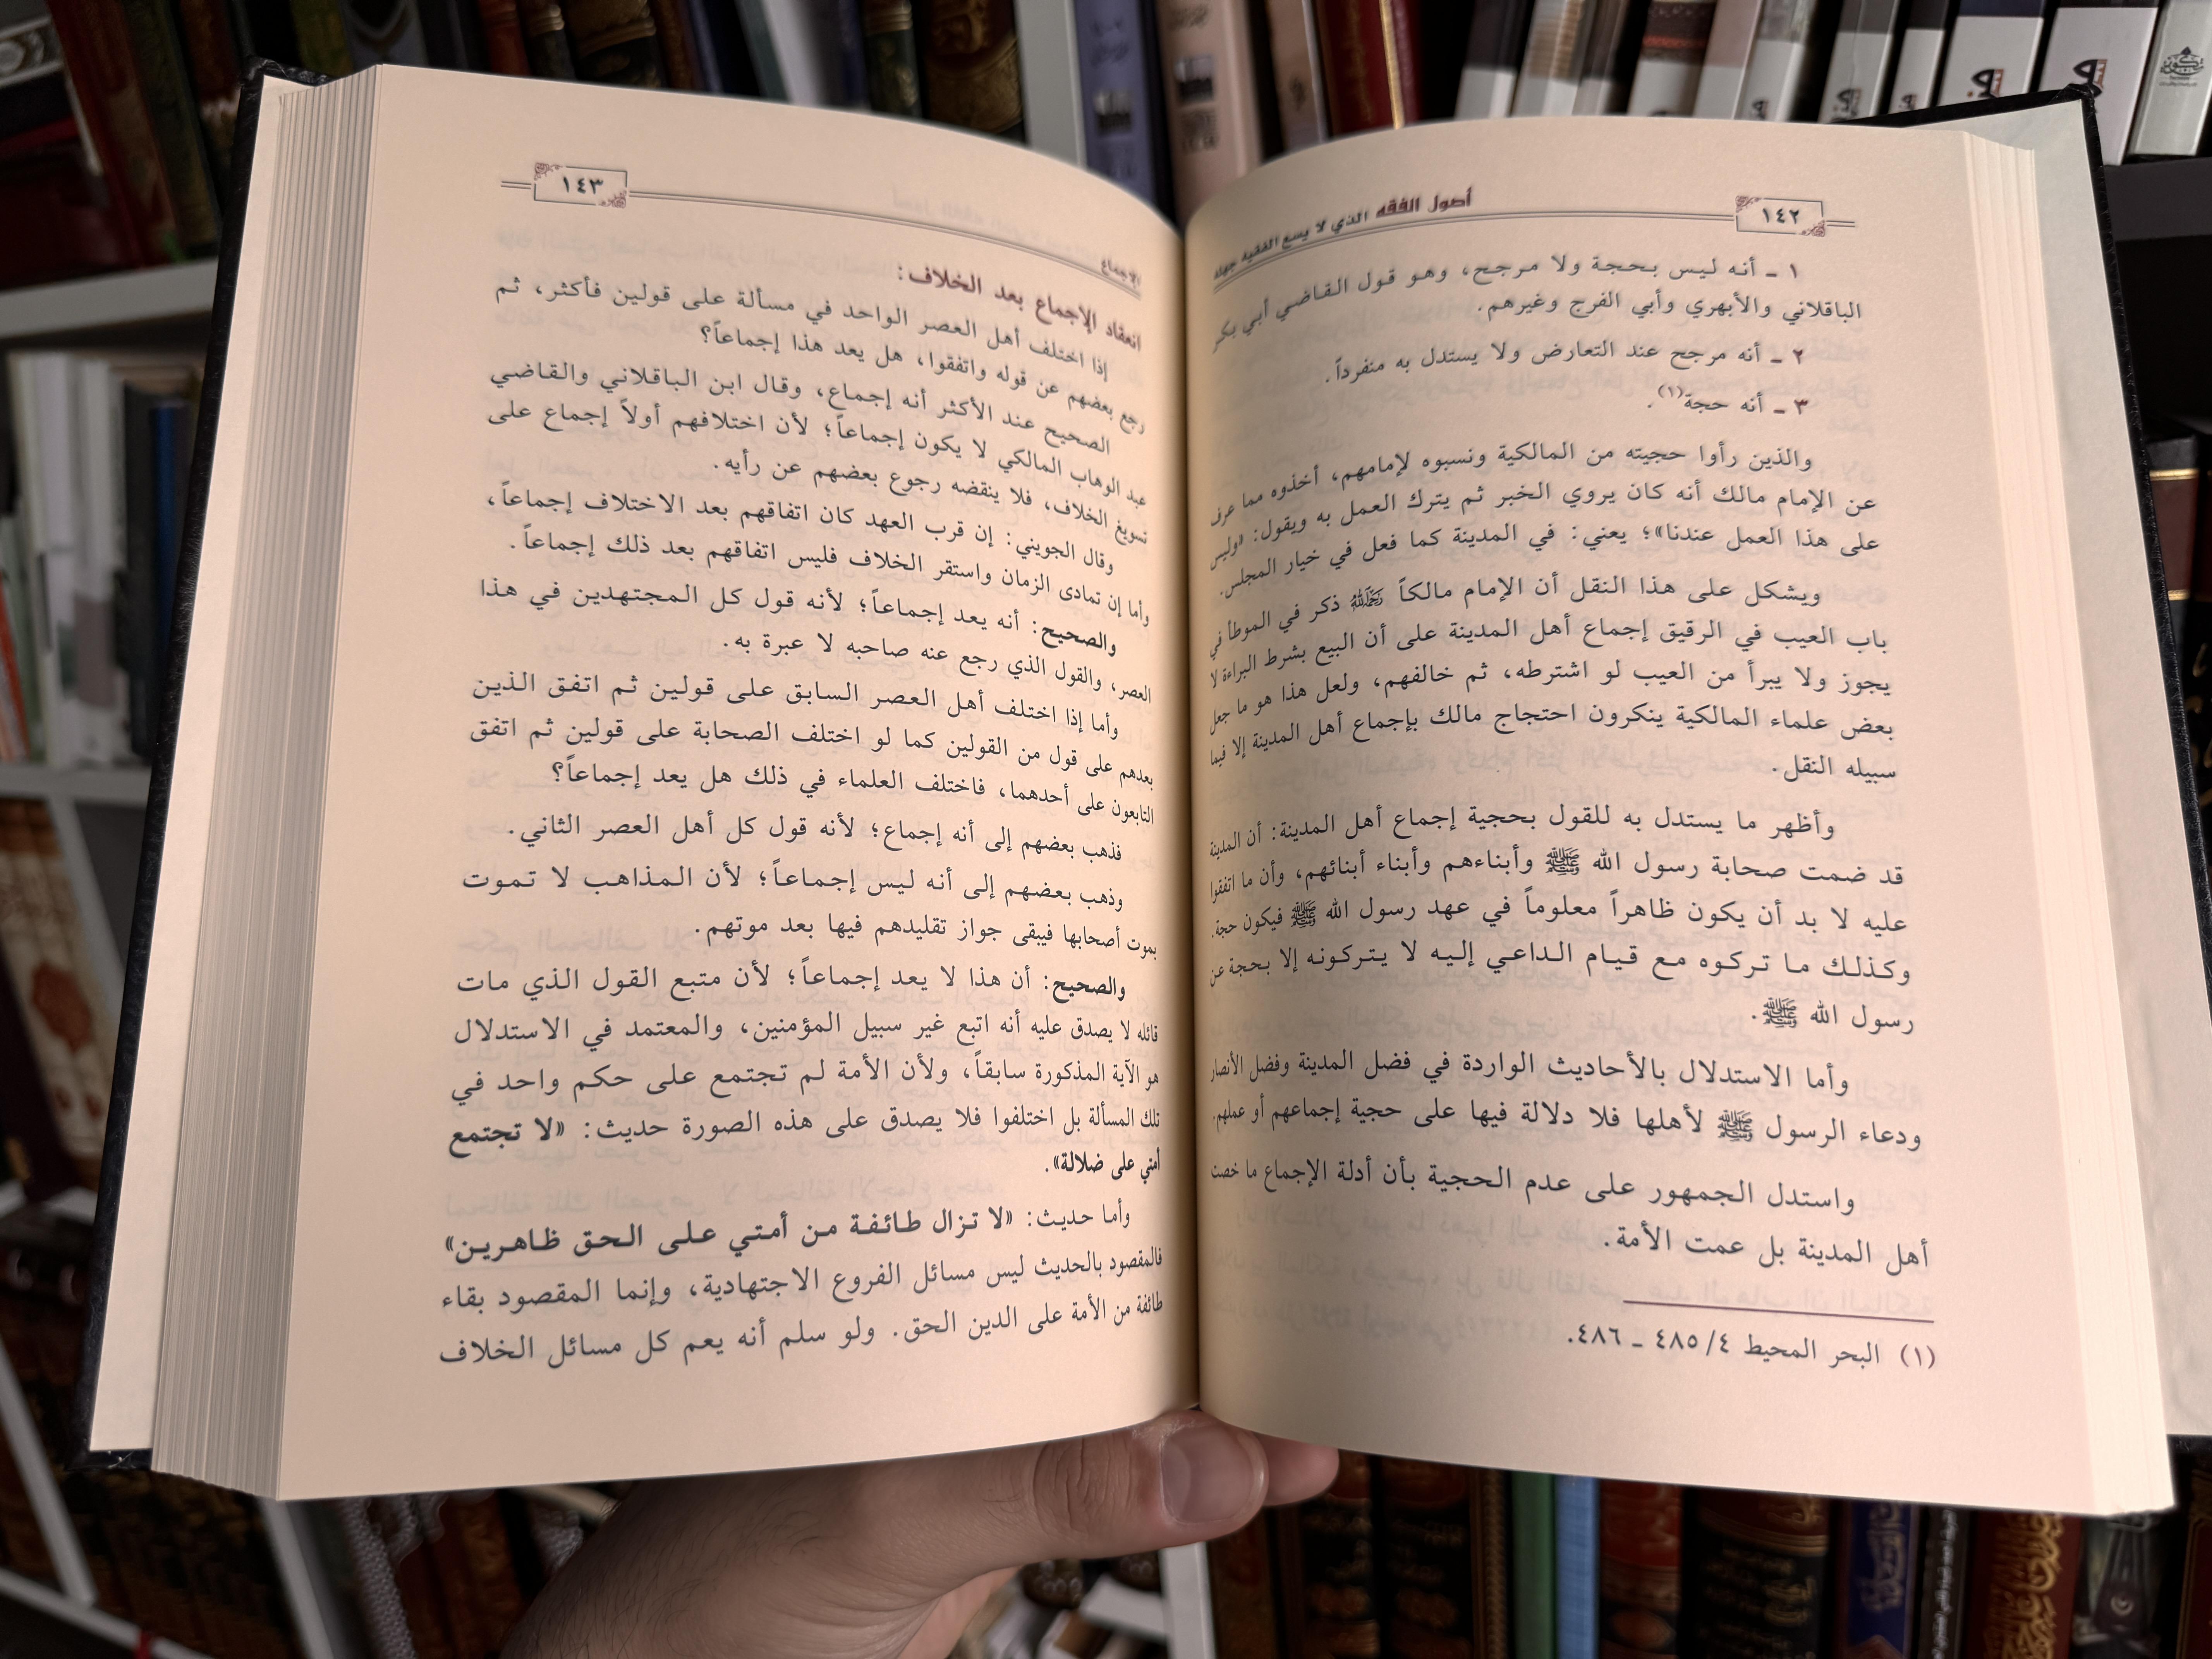 ١٤٢
أصول الفقه الذي لا يسع الفقيه جهله
١ ـ أنه ليس بحجة ولا مرجح، وهو قول القاضي أبي بكر
الباقلاني والأبهري وأبي الفرج وغيرهم.
٢ ـ أنه مرجح عند التعارض ولا يستدل به منفرداً.
٣ ـ أنه حجة(١).
والذين رأوا حجيته من المالكية ونسبوه لإمامهم، أخذوه مما عرف
عن الإمام مالك أنه كان يروي الخبر ثم يترك العمل به ويقول: «وليس
على هذا العمل عندنا»؛ يعني: في المدينة كما فعل في خيار المجلس.
ويشكل على هذا النقل أن الإمام مالكاً رحمه الله ذكر في الموطأ في
باب العيب في الرقيق إجماع أهل المدينة على أن البيع بشرط البراءة لا
يجوز ولا يبرأ من العيب لو اشترطه، ثم خالفهم، ولعل هذا هو ما جعل
بعض علماء المالكية ينكرون احتجاج مالك بإجماع أهل المدينة إلا فيما
سبيله النقل.
وأظهر ما يستدل به للقول بحجية إجماع أهل المدينة: أن المدينة
قد ضمت صحابة رسول الله ﷺ وأبناءهم وأبناء أبنائهم، وأن ما اتفقوا
عليه لا بد أن يكون ظاهراً معلوماً في عهد رسول الله ﷺ فيكون حجة.
وكذلك ما تركوه مع قيام الداعي إليه لا يتركونه إلا بحجة عن
رسول الله ﷺ.
وأما الاستدلال بالأحاديث الواردة في فضل المدينة وفضل الأنصار
ودعاء الرسول ﷺ لأهلها فلا دلالة فيها على حجية إجماعهم أو عملهم.
واستدل الجمهور على عدم الحجية بأن أدلة الإجماع ما خصت
أهل المدينة بل عمت الأمة.
(١) البحر المحيط ٤/ ٤٨٥ ـ ٤٨٦.
الإجماع
١٤٣
انعقاد الإجماع بعد الخلاف:
إذا اختلف أهل العصر الواحد في مسألة على قولين فأكثر، ثم
رجع بعضهم عن قوله واتفقوا، هل يعد هذا إجماعاً؟
الصحيح عند الأكثر أنه إجماع، وقال ابن الباقلاني والقاضي
عبد الوهاب المالكي لا يكون إجماعاً؛ لأن اختلافهم أولاً إجماع على
تسويغ الخلاف، فلا ينقضه رجوع بعضهم عن رأيه.
وقال الجويني: إن قرب العهد كان اتفاقهم بعد الاختلاف إجماعاً،
وأما إن تمادى الزمان واستقر الخلاف فليس اتفاقهم بعد ذلك إجماعاً.
والصحيح: أنه يعد إجماعاً؛ لأنه قول كل المجتهدين في هذا
العصر، والقول الذي رجع عنه صاحبه لا عبرة به.
وأما إذا اختلف أهل العصر السابق على قولين ثم اتفق الذين
بعدهم على قول من القولين كما لو اختلف الصحابة على قولين ثم اتفق
التابعون على أحدهما، فاختلف العلماء في ذلك هل يعد إجماعاً؟
فذهب بعضهم إلى أنه إجماع؛ لأنه قول كل أهل العصر الثاني.
وذهب بعضهم إلى أنه ليس إجماعاً؛ لأن المذاهب لا تموت
بموت أصحابها فيبقى جواز تقليدهم فيها بعد موتهم.
والصحيح: أن هذا لا يعد إجماعاً؛ لأن متبع القول الذي مات
قائله لا يصدق عليه أنه اتبع غير سبيل المؤمنين، والمعتمد في الاستدلال
هو الآية المذكورة سابقاً، ولأن الأمة لم تجتمع على حكم واحد في
تلك المسألة بل اختلفوا فلا يصدق على هذه الصورة حديث: «لا تجتمع
أمتي على ضلالة».
وأما حديث: «لا تزال طائفة من أمتي على الحق ظاهرين»
فالمقصود بالحديث ليس مسائل الفروع الاجتهادية، وإنما المقصود بقاء
طائفة من الأمة على الدين الحق. ولو سلم أنه يعم كل مسائل الخلاف